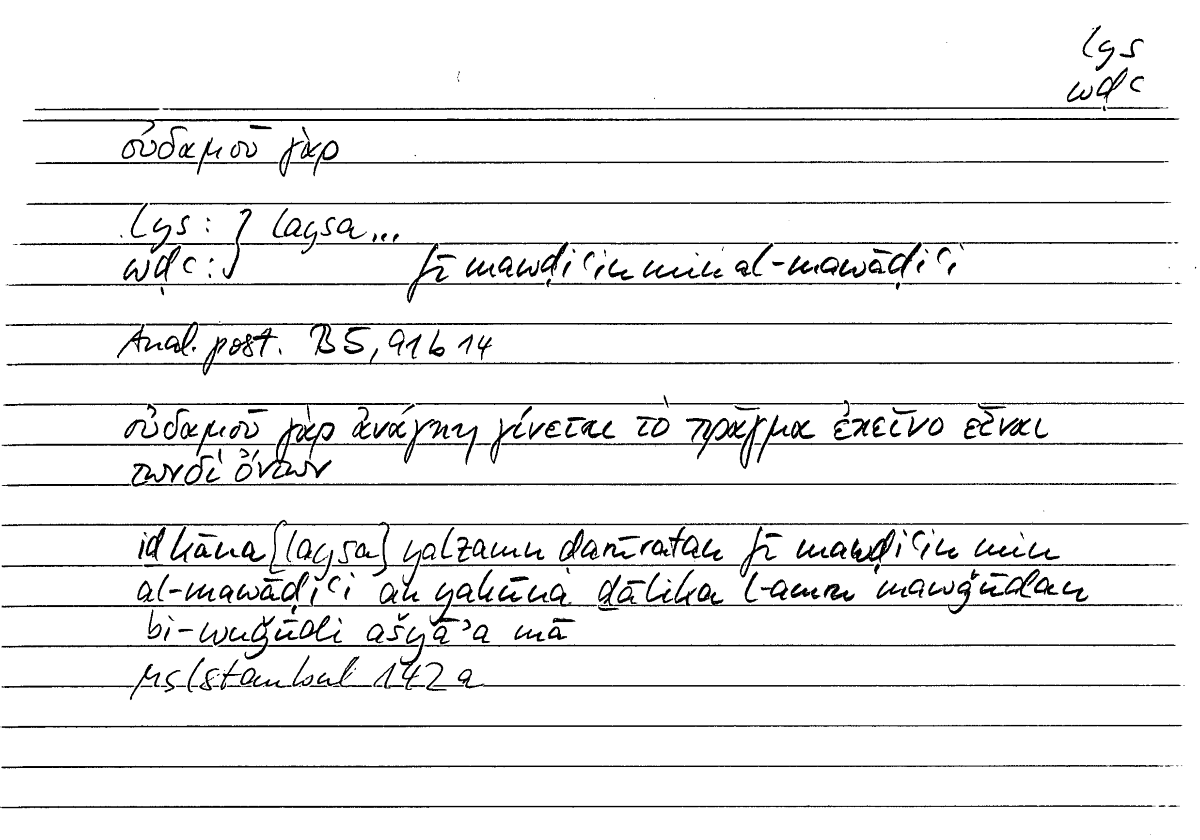 lys
wḍʿ
οὐδαμοῦ γὰρ
lys : } laysa...
wḍʿ : } fī mawḍiʿin min al-mawāḍiʿi
Anal. post. B5, 91b14
οὐδαμοῦ γὰρ ἀνάγκη γίνεται τὸ πρᾶγμα ἐκεῖνο εἶναι
τωνδὶ ὄντων
iḏ kāna [laysa] yalzamu ḍarūratan fī mawḍiʿin min
al-mawāḍiʿi an yakūna ḏālika l-amru mawǧūdan
bi-wuǧūdi ašyāʾa mā
Ms Istanbul 142a